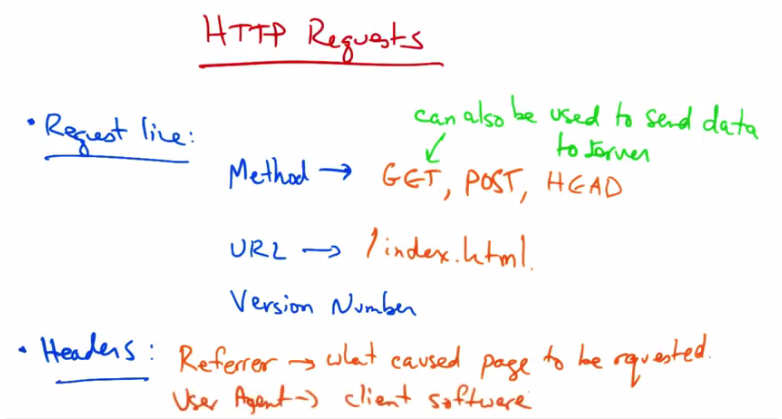 HTTP Requests
can also be used to send data
to server
• Request line:
Method → GET, POST, HEAD
URL → /index.html.
Version Number
• Headers: Referrer → what caused page to be requested.
User Agent → client software